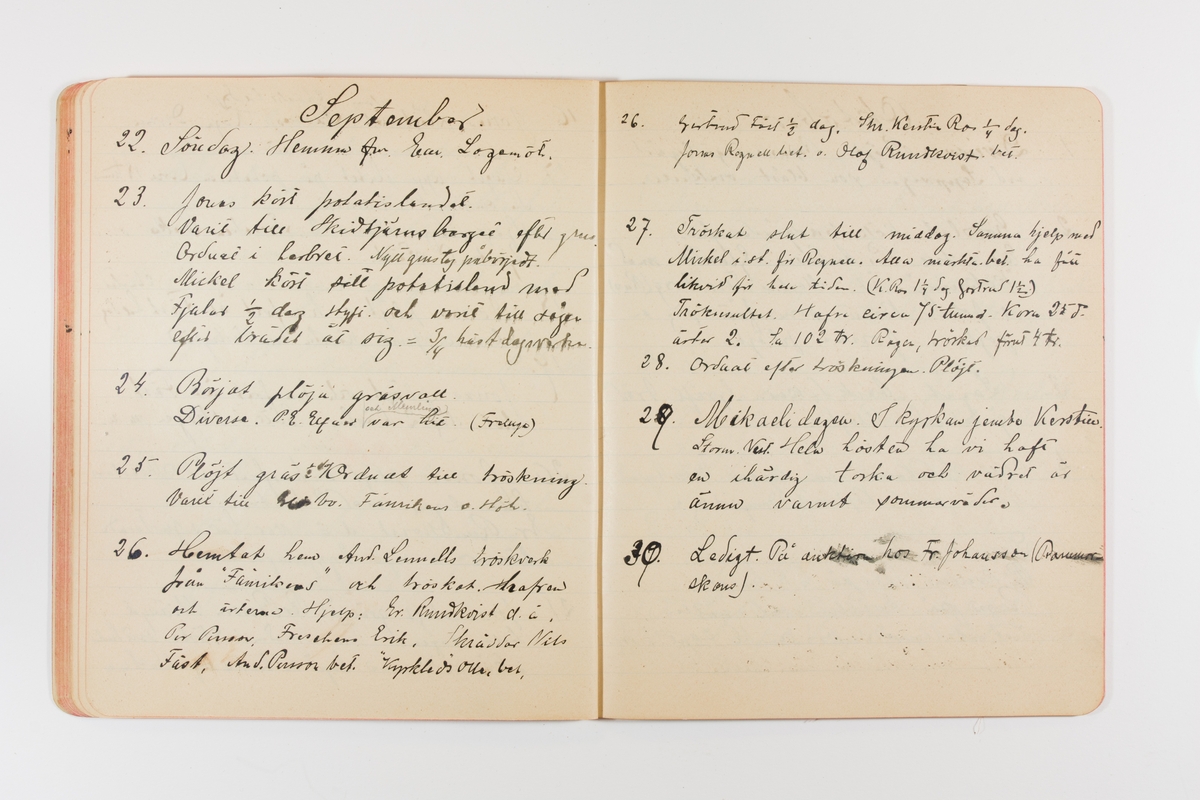 September.
22. Söndag. Hemma fm. Em. Logemöt.
23. Jonas kört potatislandet.
Varit till Skidtjärnsberget efter grus.
Ordnat i herbret. Nytt påbörjadt.
Mickel kört till potatisland med
Fjalar ½ dag och varit till sågen
efter bräder åt sig. = 3/4 hästdagsverken.
24. Börjat plöja gräsvall.
Diverse. P.E. var hit. (Freluga)
25. Plöjt gräs Ordnat till tröskning.
Varit till bo. Fänrikens o. Höh.
26. Hemtat hem And. Lennells tröskverk
från "Fänrikens" och tröskat hafren
och ärterna. Hjelp: Er. Rundkvist d.ä,
Per Persson, Freschens Erik, Skräddar Nils
Fäst, And. Persson bet. "Kyrkleds Olle, bet,
26. Gertrud Fäst ½ dag. Kerstin Ros ¼ dag.
Jonas Regnell bet. o. Olof Rundkvist bet.
27. Tröskat slut till middag. Samma hjelp med
Mickel i st. för Regnell. Alla märkta bet. ha fått
likvid för hela tiden. (K. Ros 1¼ dag Gertrud 1½)
Tröskresultat. Hafre circa 75 tunnd. Korn 25 d:
ärter 2. Sa 102 tr. Rågen, tröskad förut 4 tr.
28. Ordnat efter tröskningen. Plöjt.
29. Mikaelidagen. I kyrkan jemte Kerstin.
Storm. Vest. Hela hösten ha vi haft
en ihärdig torka och vädret är
ännu varmt sommarväder.
30. Ledigt. På auktion hos Fr. Johansson (Rammsi-
skans).